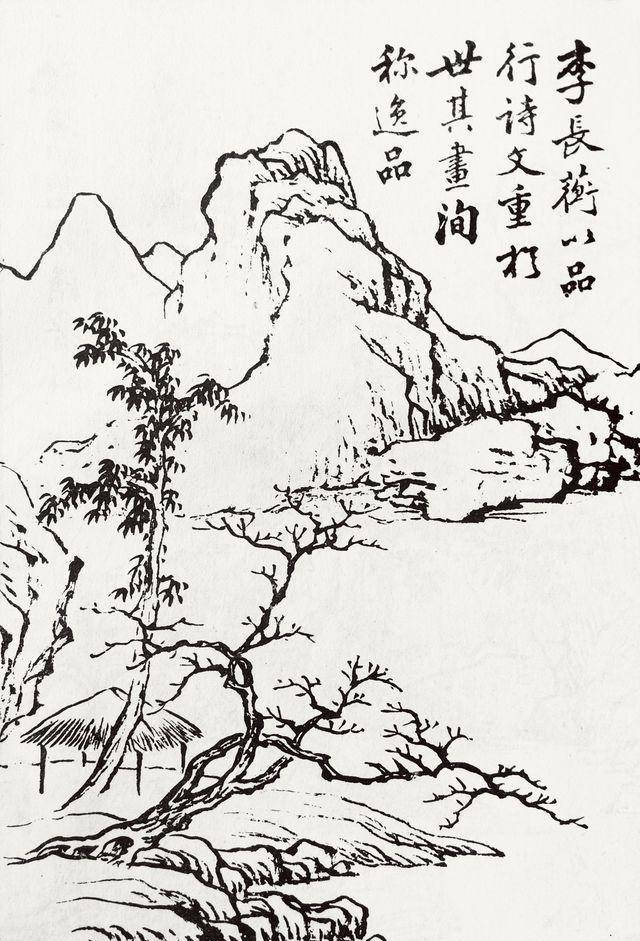 李長蘅以品
行詩文重於
世其畫洵
称逸品